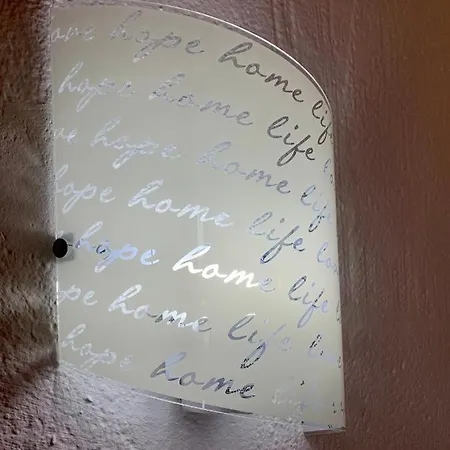 hope home life
hope home life
hope home life
hope home life
hope home life
hope home life
hope home